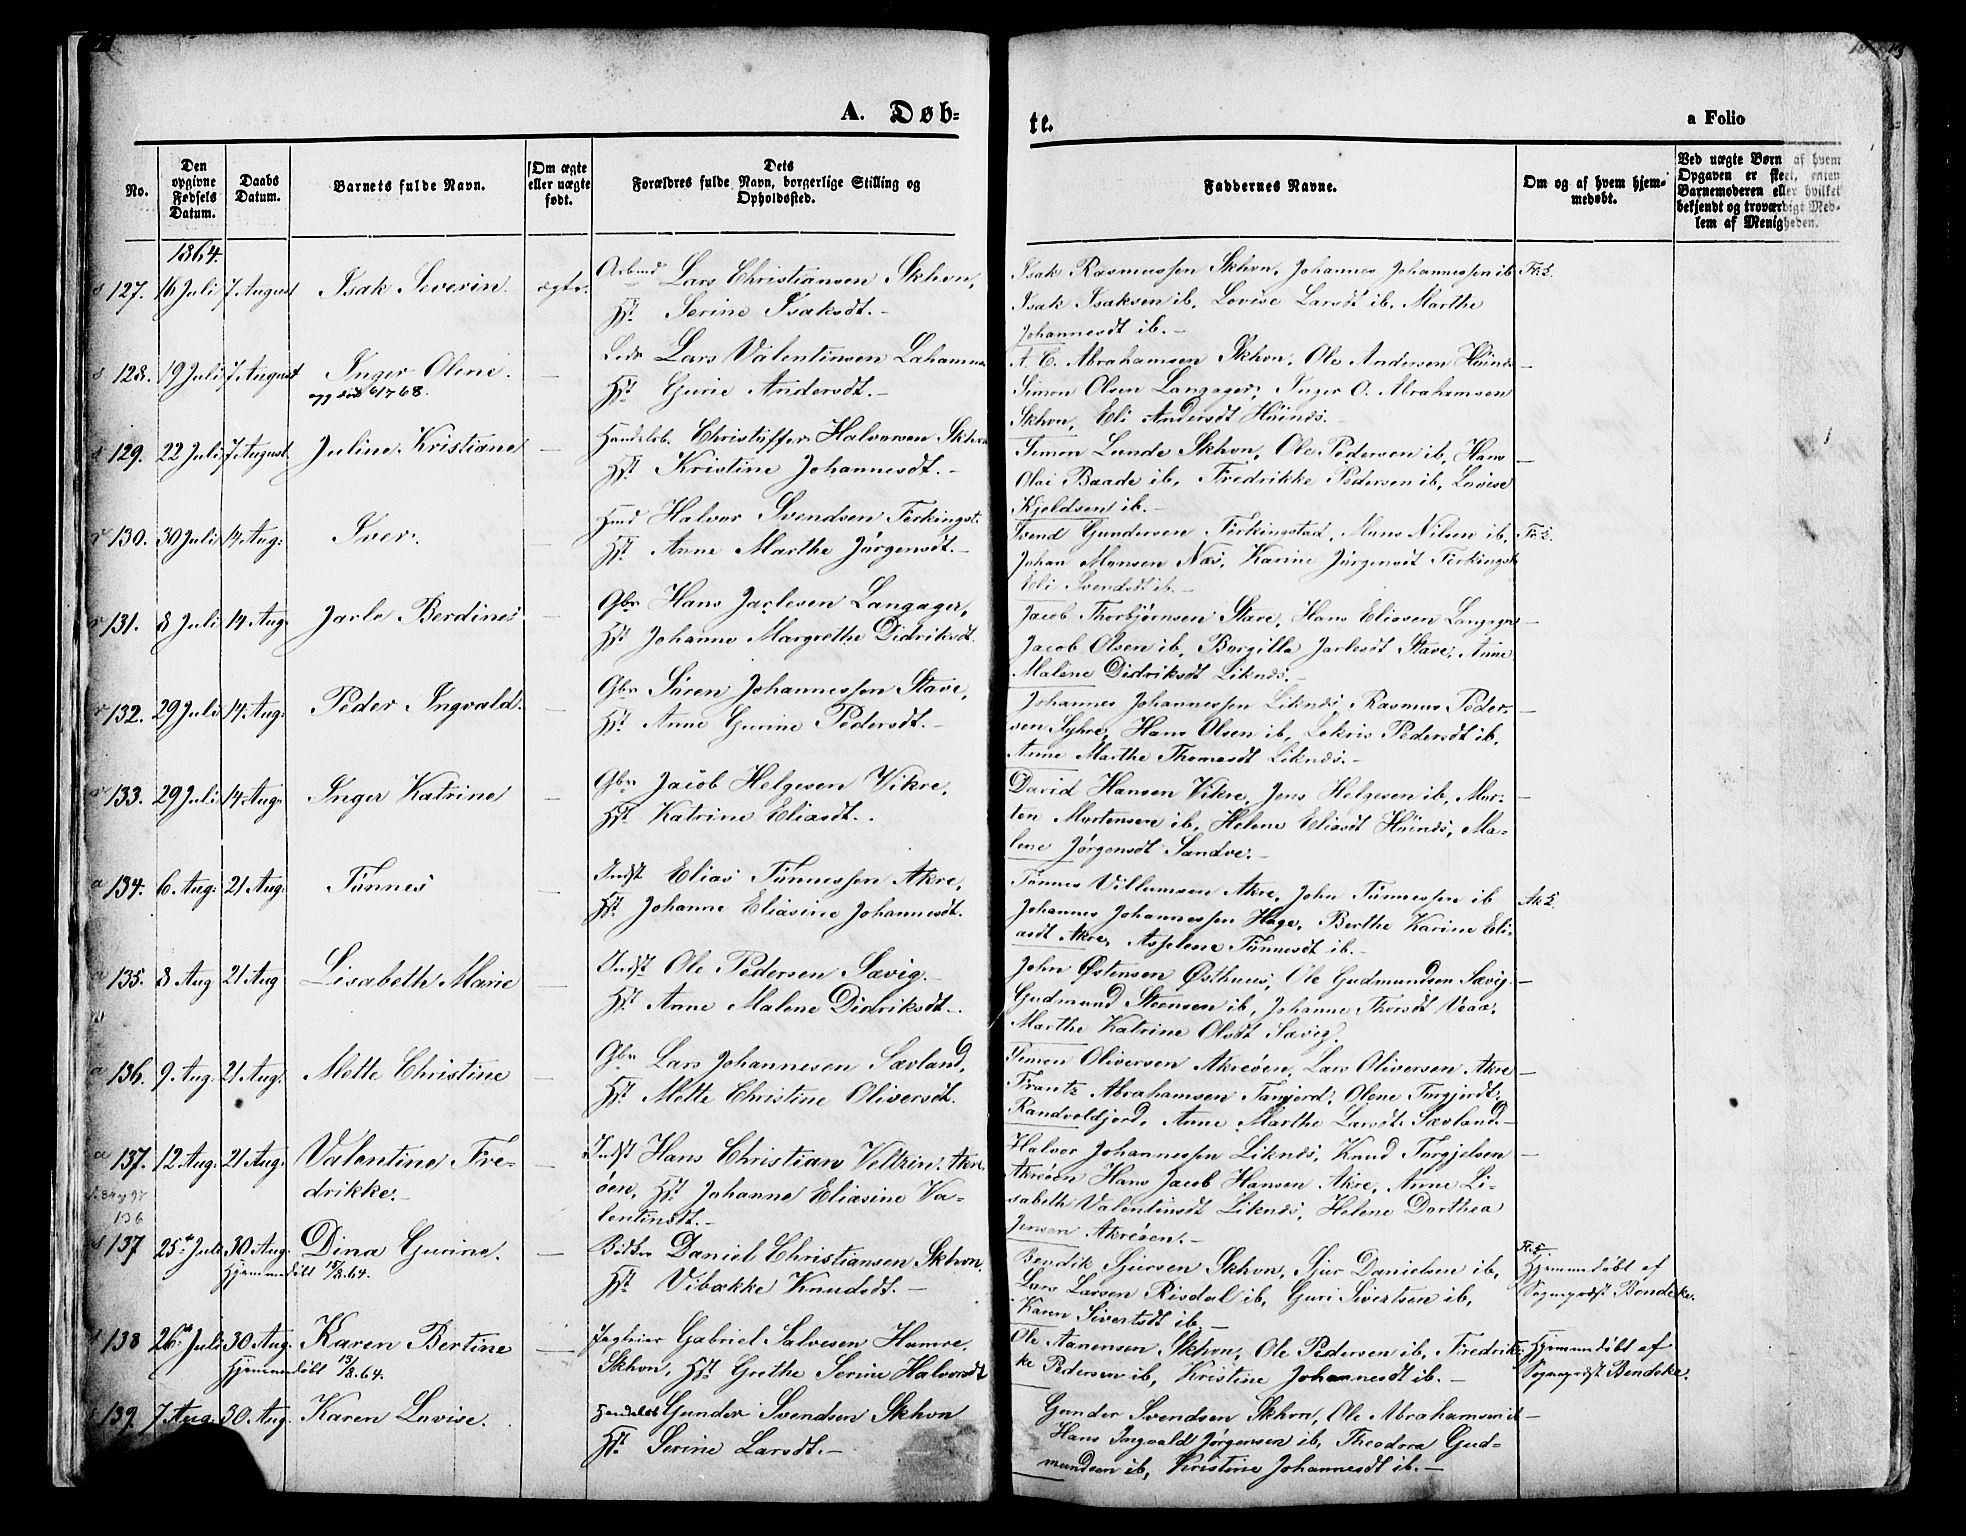 A. Døb=
te.
a Folio
No.
Den opgivne Fødsels Datum.
Daabs Datum.
Barnets fulde Navn.
Om ægte eller uægte født.
Dets Forældres fulde Navn, borgerlige Stilling og Opholdssted.
Faddernes Navne.
Om og af hvem hjemmedøbt.
Ved uægte Børn af hvem Opgaven er skeet, enten Barnemoderen eller hvilket bekjendt og troværdigt Medlem af Menigheden.
1864.
127. 16 Juli 7 August Isak Severin. ægte. Arbmd Lars Christiansen Skhvn,
Hst. Serine Isaksdt. –
Isak Rasmussen Skhvn, Johannes Johannessen ib
Isak Isaksen ib, Lovise Larsdt ib, Marthe
Johannesdt ib. –
128. 19 Juli 7 August Inger Olene. – Lars Valentinsen
Hst. Gurie Andersdt. –
A. C. Abrahamsen Skhvn, Ole Andersen Hiinds –
Simon Olsen Langager, Inger O. Abrahamsen
Skhvn, Eli Andersdt Hiinds. –
129. 22 Juli 7 August. Juline Kristiane – Handelsb. Christuffer Halvorsen Skhvn
Hst. Kristine Johannesdt. –
Simon Lunde Skhvn, Ole Pedersen ib, Hans –
Olai Baade ib, Fredrikke Pedersen ib, Lovise
Kjeldsen ib. –
130. 30 Juli 14 Aug: Iver. – Halvor Svendsen Ferkingst.
Hst. Anne Marthe Jørgensdt. –
Svend Gundersen Ferkingstad, Hans Nilsen ib,
Johan Monsen Næs, Karine Jørgensdt Ferkingst
Eli Svendsdt ib. –
131. 8 Juli 14 Aug. Jarle Berdines – Gbr Hans Jarlesen Langager,
Hst Johanne Margrethe Didriksdt.
Jacob Thorbjørnsen Stave, Hans Eliasen Langager –
Jacob Olsen ib, Borgilla Jarlesdt Stave, Anne
Malene Didriksdt Liknes. –
132. 29 Juli 14 Aug: Peder Ingvald. – Gbr Sören Johannessen Stave,
Hst. Anne Gurine Pedersdt. –
Johannes Johannessen Liknes, Rasmus Peder- –
sen Syhre, Hans Olsen ib, Lekris Pedersdt ib,
Anne Marthe Thomasdt Liknes. –
133. 29 Juli 14 Aug. Inger Katrine – Gbr Jacob Helgesen Vikre,
Hst Katrine Eliasdt. –
David Hansen Vikre, Jens Helgesen ib, Mor- –
ten Mortensen ib, Helene Eliasdt Hiinds, Ma-
lene Jørgensdt Sandve. –
134. 6 Aug: 21 Aug: Tönnes – Indst Elias Tönnessen Akre,
Hst. Johanne Eliasine Johannesdt.
Tönnes Villumsen Akre, John Tönnessen ib
Johannes Johannessen Hage, Berthe Karine Eli-
asdt Akre, Asselene Tönnesdt ib. –
135. 8 Aug 21 Aug Lisabeth Marie – Indst Ole Pedersen Sævig –
Hst. Anne Malene Didriksdt –
John Østensen Østhuus, Ole Gudmundsen Sævig. –
Gudmund Steensen ib, Johanne Thorsdt Veaa,
Marthe Katrine Olsdt Sævig.
136. 9 Aug. 21 Aug. Mette Christine – Gbr Lars Johannesen Sævland,
Hst. Mette Christine Oliversdt.
Simon Oliversen Akreøen, Lars Oliversen Akre –
Frantz Abrahamsen Tanjerd, Olene Torgjerdt
Anne Marthe Larsdt Sævland. –
137. 12 Aug. 21 Aug. Valentine Fre- – Indst Hans Christian Veltzin, Akre
drikke. – øen, Hst. Johanne Eliasine Va-
lentinsdt. –
Halvor Johannessen Liknes, Knud Torgjelsen –
Akreøen Hans Jacob Hansen Akre, Anne Li-
sabeth Valentinsdt Liknes, Helene Dorthea
Jensen Akreøen. –
136
137 25de Juli 30 Aug. Dina Gurine. – Bödker Daniel Christiansen Skhvn,
Hjemmedöbt 15/8.64. Hst. Vibække Knudsdt. –
Bendik Sjursen Skhvn, Sjur Danielsen ib,
Lars Larsen Risdal ib, Guri Sivertsen ib,
Karen Sivertsdt ib. –
Hjemmedöbt af
Sogneprest Bendeke.
138 26de Juli 30 Aug. Karen Bertine – Jagteier Gabriel Salvesen Hamre,
Hjemmedöbt 13/8.64. Skhvn, Hst. Grethe Serine Halvorsdt
Ole Aanensen Skhvn, Ole Pedersen ib, Fredrik-
ke Pedersen ib, Kristine Johannesdt ib. –
Hjemmedöbt af
Sogneprest Bendeke.
139. 7 Aug. 30 Aug. Karen Lovise. Handelsb Gunder Svendsen Skhvn
Hst. Serine Larsdt. –
Gunder Svendsen Skhvn, Ole Abrahamsen ib –
Hans Ingvald Jørgensen ib, Theodora Gud=
mundsen ib, Kristine Johannesdt ib. –